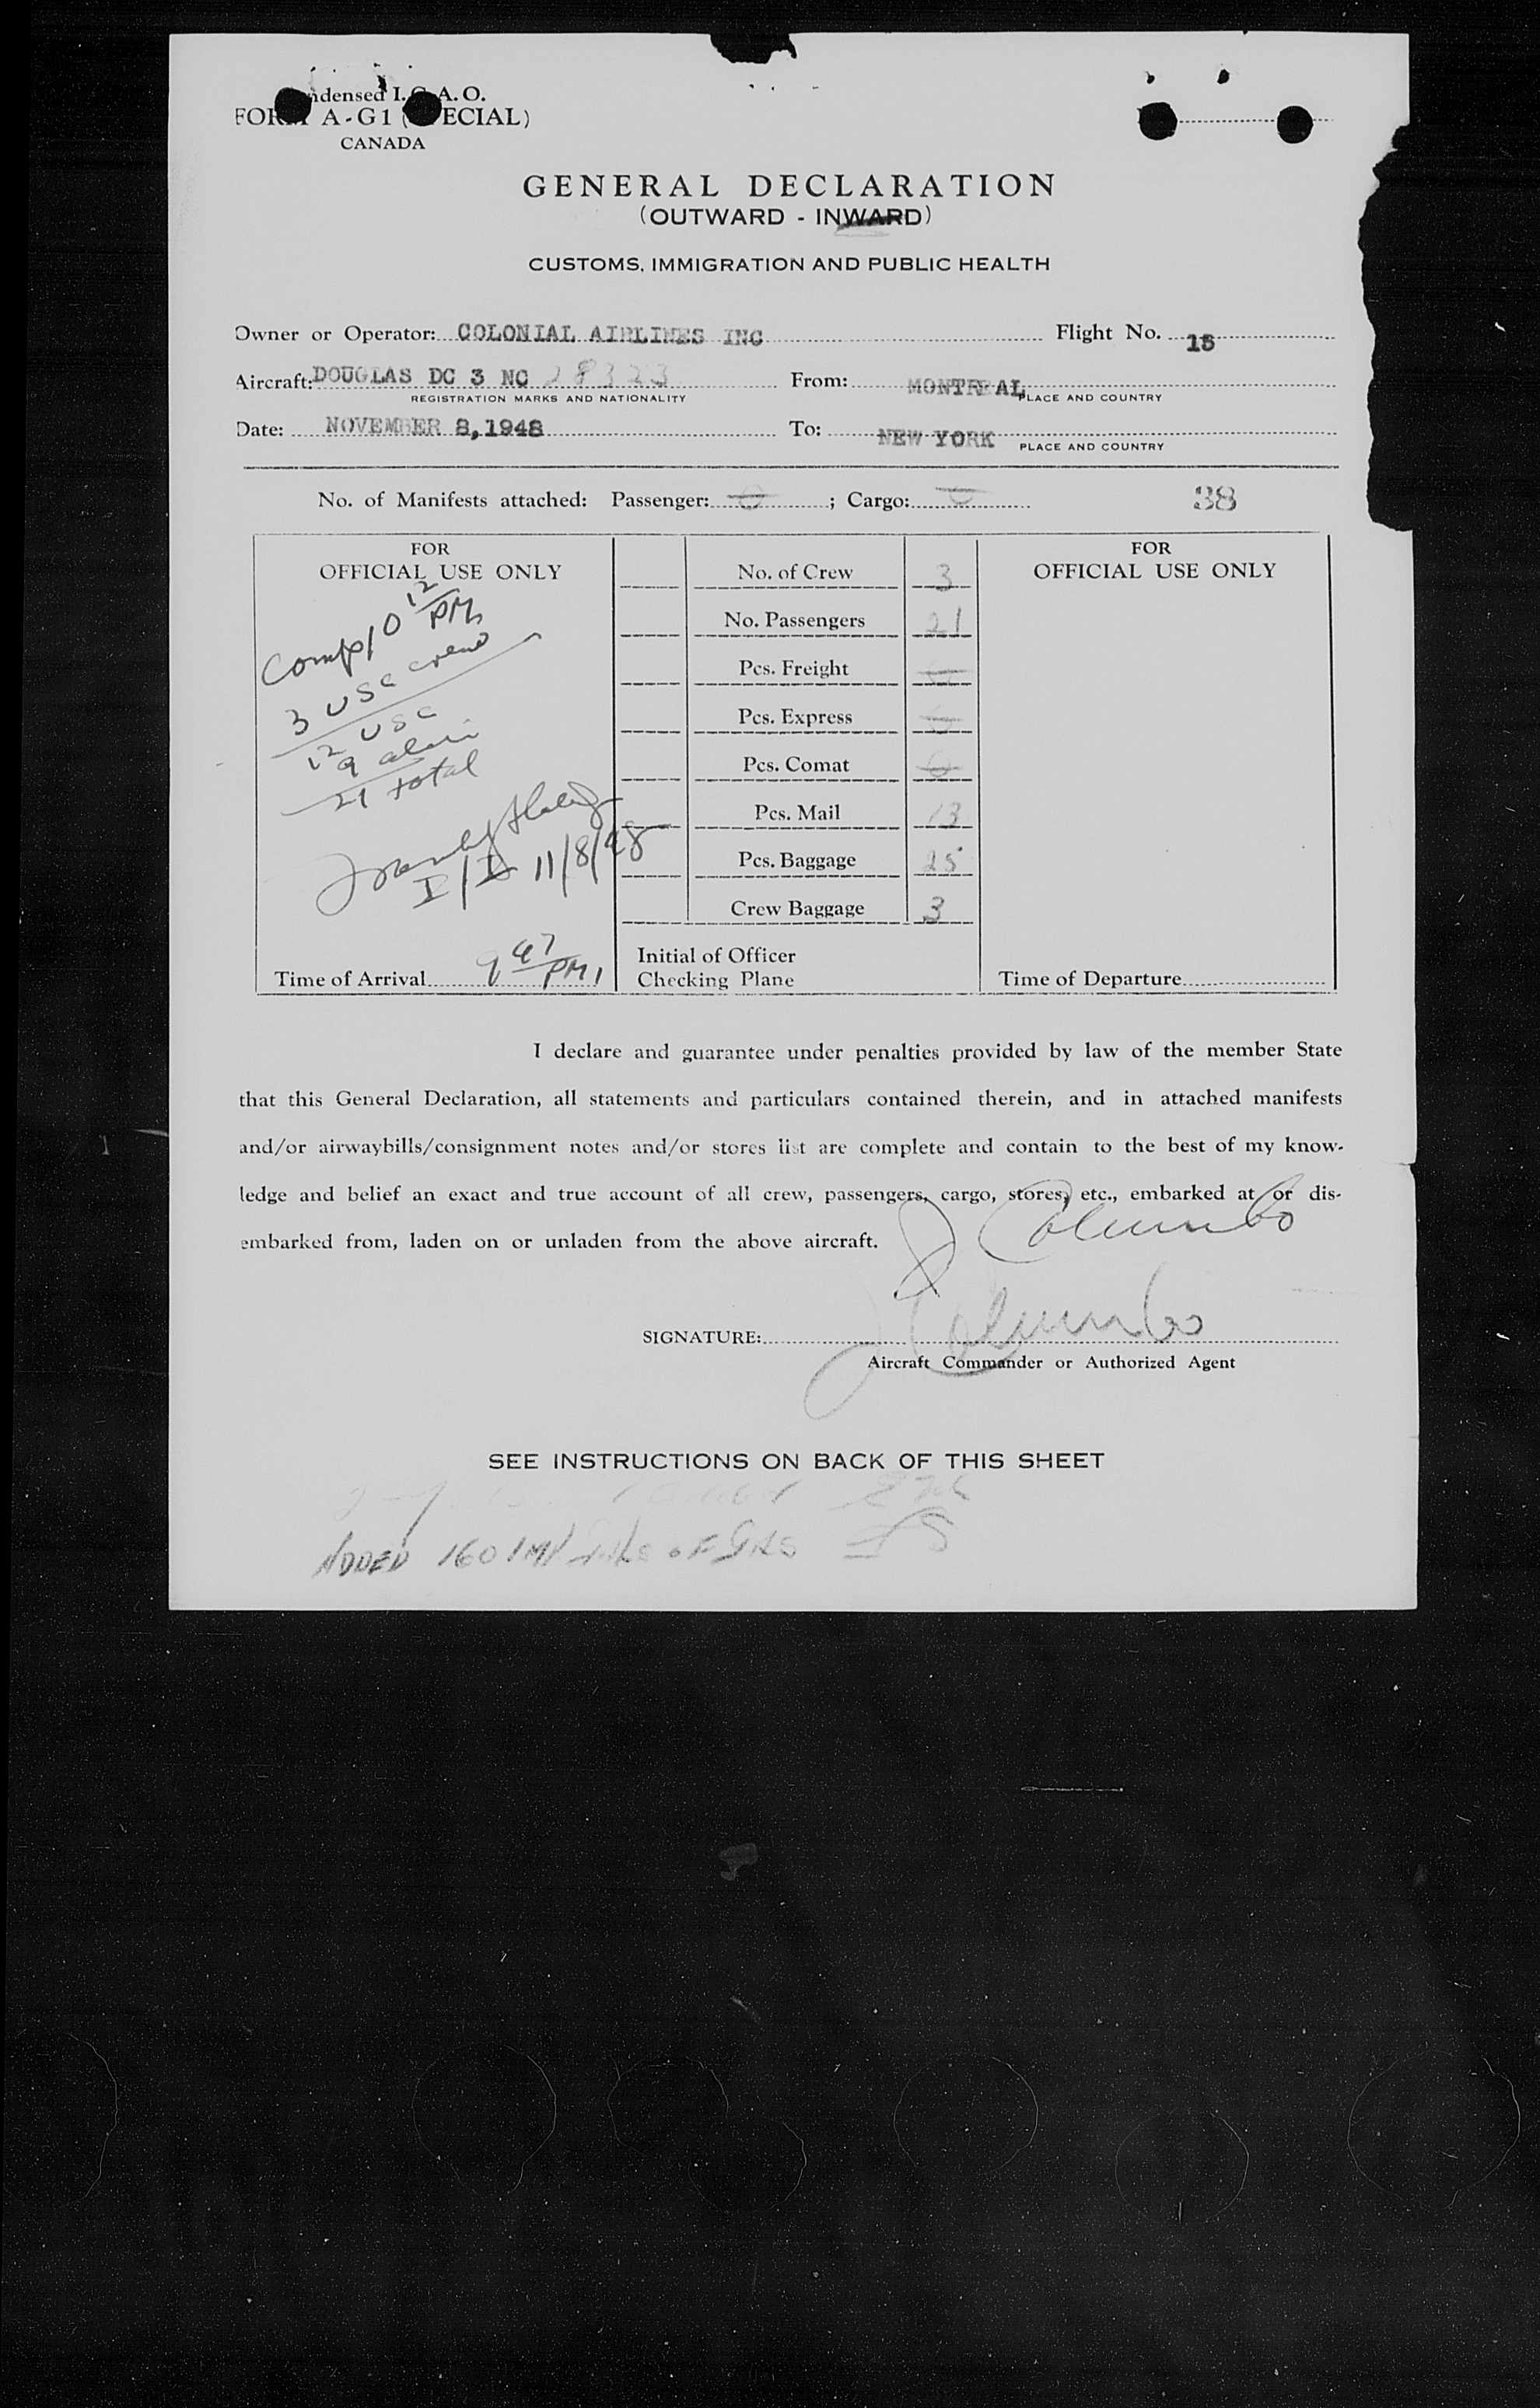 ndensed I.C.A.O.
FORM A-G1 (SPECIAL)
CANADA
GENERAL DECLARATION
(OUTWARD - INWARD)
CUSTOMS, IMMIGRATION AND PUBLIC HEALTH
Owner or Operator: COLONIAL AIRLINES INC Flight No. 15
Aircraft: DOUGLAS DC 3 NC 28323 From: MONTREAL
REGISTRATION MARKS AND NATIONALITY PLACE AND COUNTRY
Date: NOVEMBER 8,1948 To: NEW YORK
PLACE AND COUNTRY
No. of Manifests attached: Passenger: 0 ; Cargo: 0 38
FOR
OFFICIAL USE ONLY
Comp 10 12 PM
3 USC crew
12 USC
9 alien
21 total
I/I 11/8/48
Time of Arrival 9 47 PM
No. of Crew 3
No. Passengers 21
Pcs. Freight
Pcs. Express
Pcs. Comat
Pcs. Mail 13
Pcs. Baggage 25
Crew Baggage 3
Initial of Officer
Checking Plane
FOR
OFFICIAL USE ONLY
Time of Departure
I declare and guarantee under penalties provided by law of the member State
that this General Declaration, all statements and particulars contained therein, and in attached manifests
and/or airwaybills/consignment notes and/or stores list are complete and contain to the best of my know-
ledge and belief an exact and true account of all crew, passengers, cargo, stores, etc., embarked at or dis-
embarked from, laden on or unladen from the above aircraft.
J Columbo
SIGNATURE: J Columbo
Aircraft Commander or Authorized Agent
SEE INSTRUCTIONS ON BACK OF THIS SHEET
ADDED 160 IMP GALS OF GAS